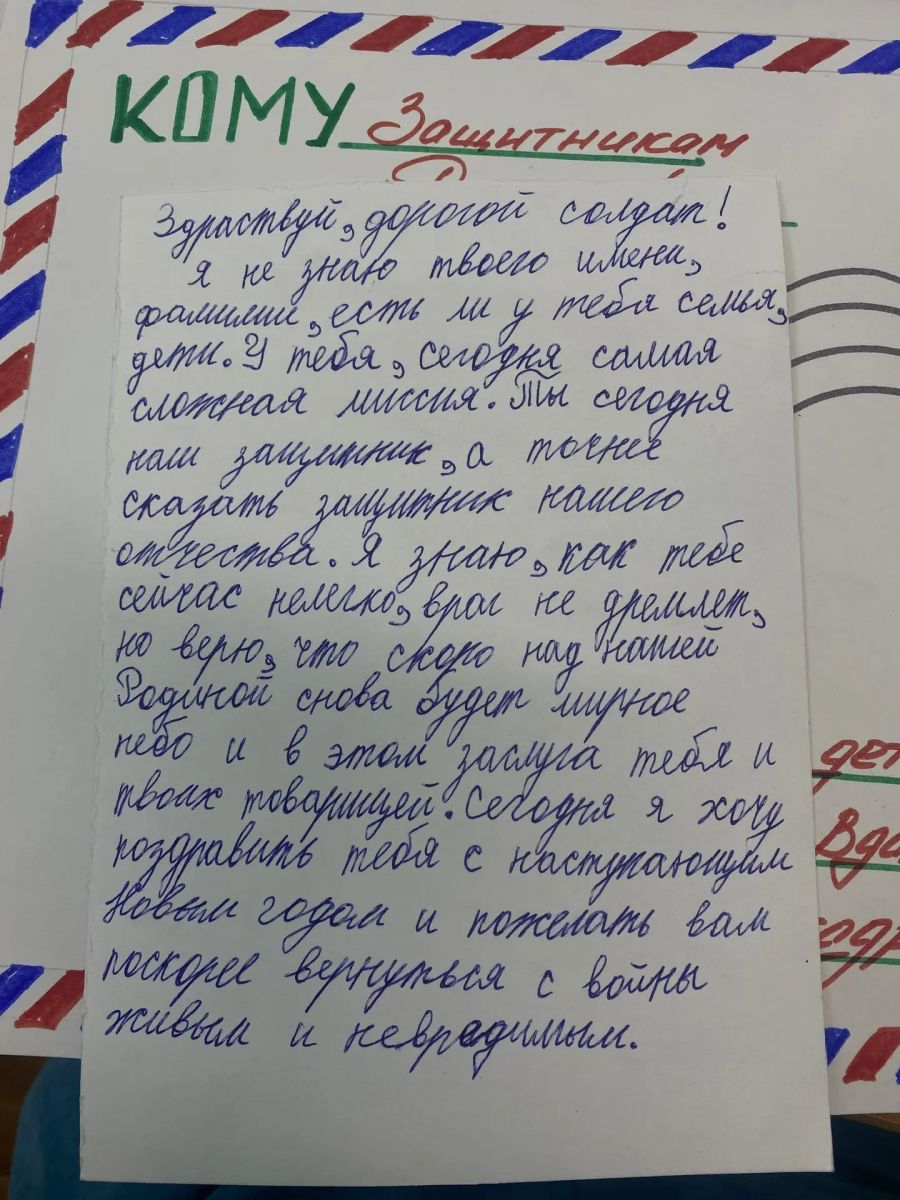 КОМУ Защитникам
Здраствуй, дорогой солдат!
Я не знаю твоего имени,
фамилии, есть ли у тебя семья,
дети. У тебя, сегодня самая
сложная миссия. Ты сегодня
наш защитник, а точнее
сказать защитник нашего
отчества. Я знаю, как тебе
сейчас нелегко, враг не дремлет,
но верю, что скоро над нашей
Родиной снова будет мирное
небо и в этом заслуга тебя и
твоих товарищей. Сегодня я хочу
поздравить тебя с наступающим
Новым годом и пожелать вам
поскорее вернуться с войны
живым и невредимым.